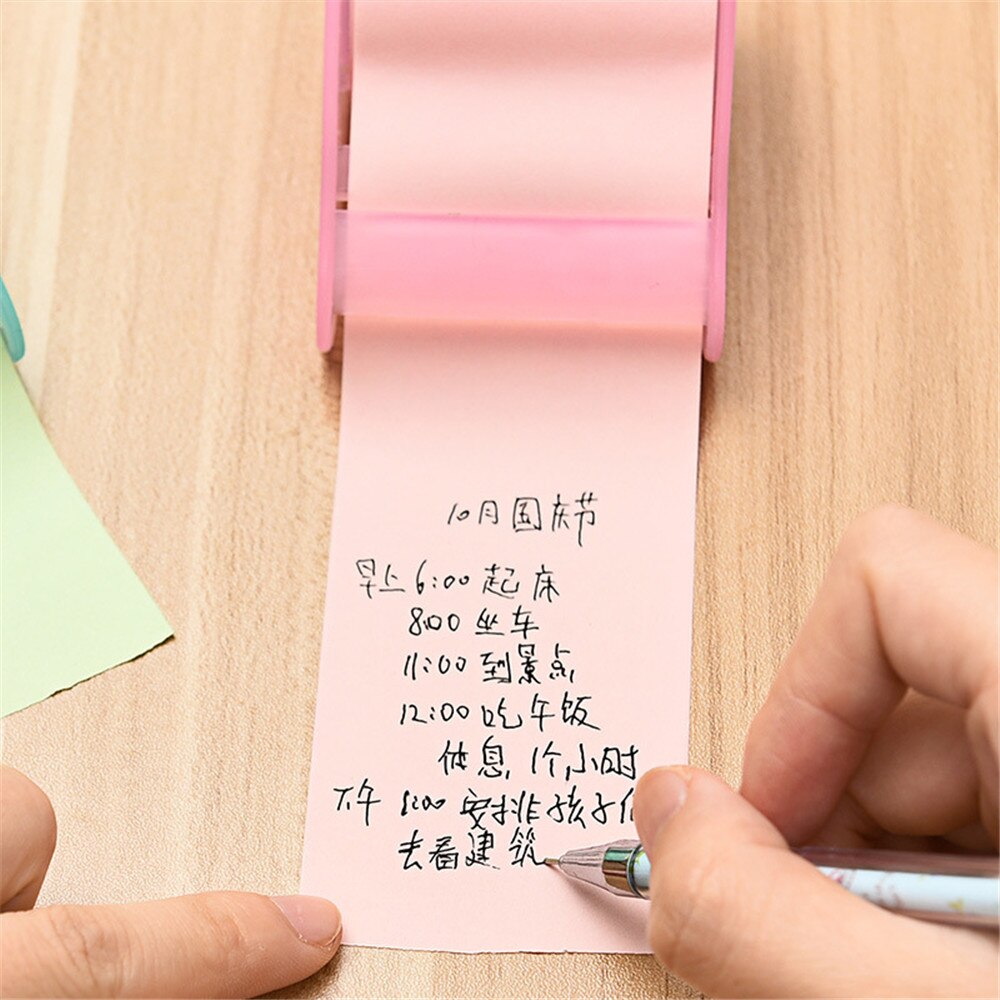 10月国庆节
早上6:00起床
8:00坐车
11:00到景点
12:00吃午饭
休息1个小时
下午1:00安排孩子们
去看建筑